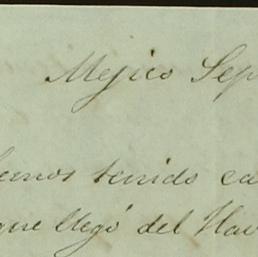 Mejico Sep
hemos tenido ca
que llegó del Hav